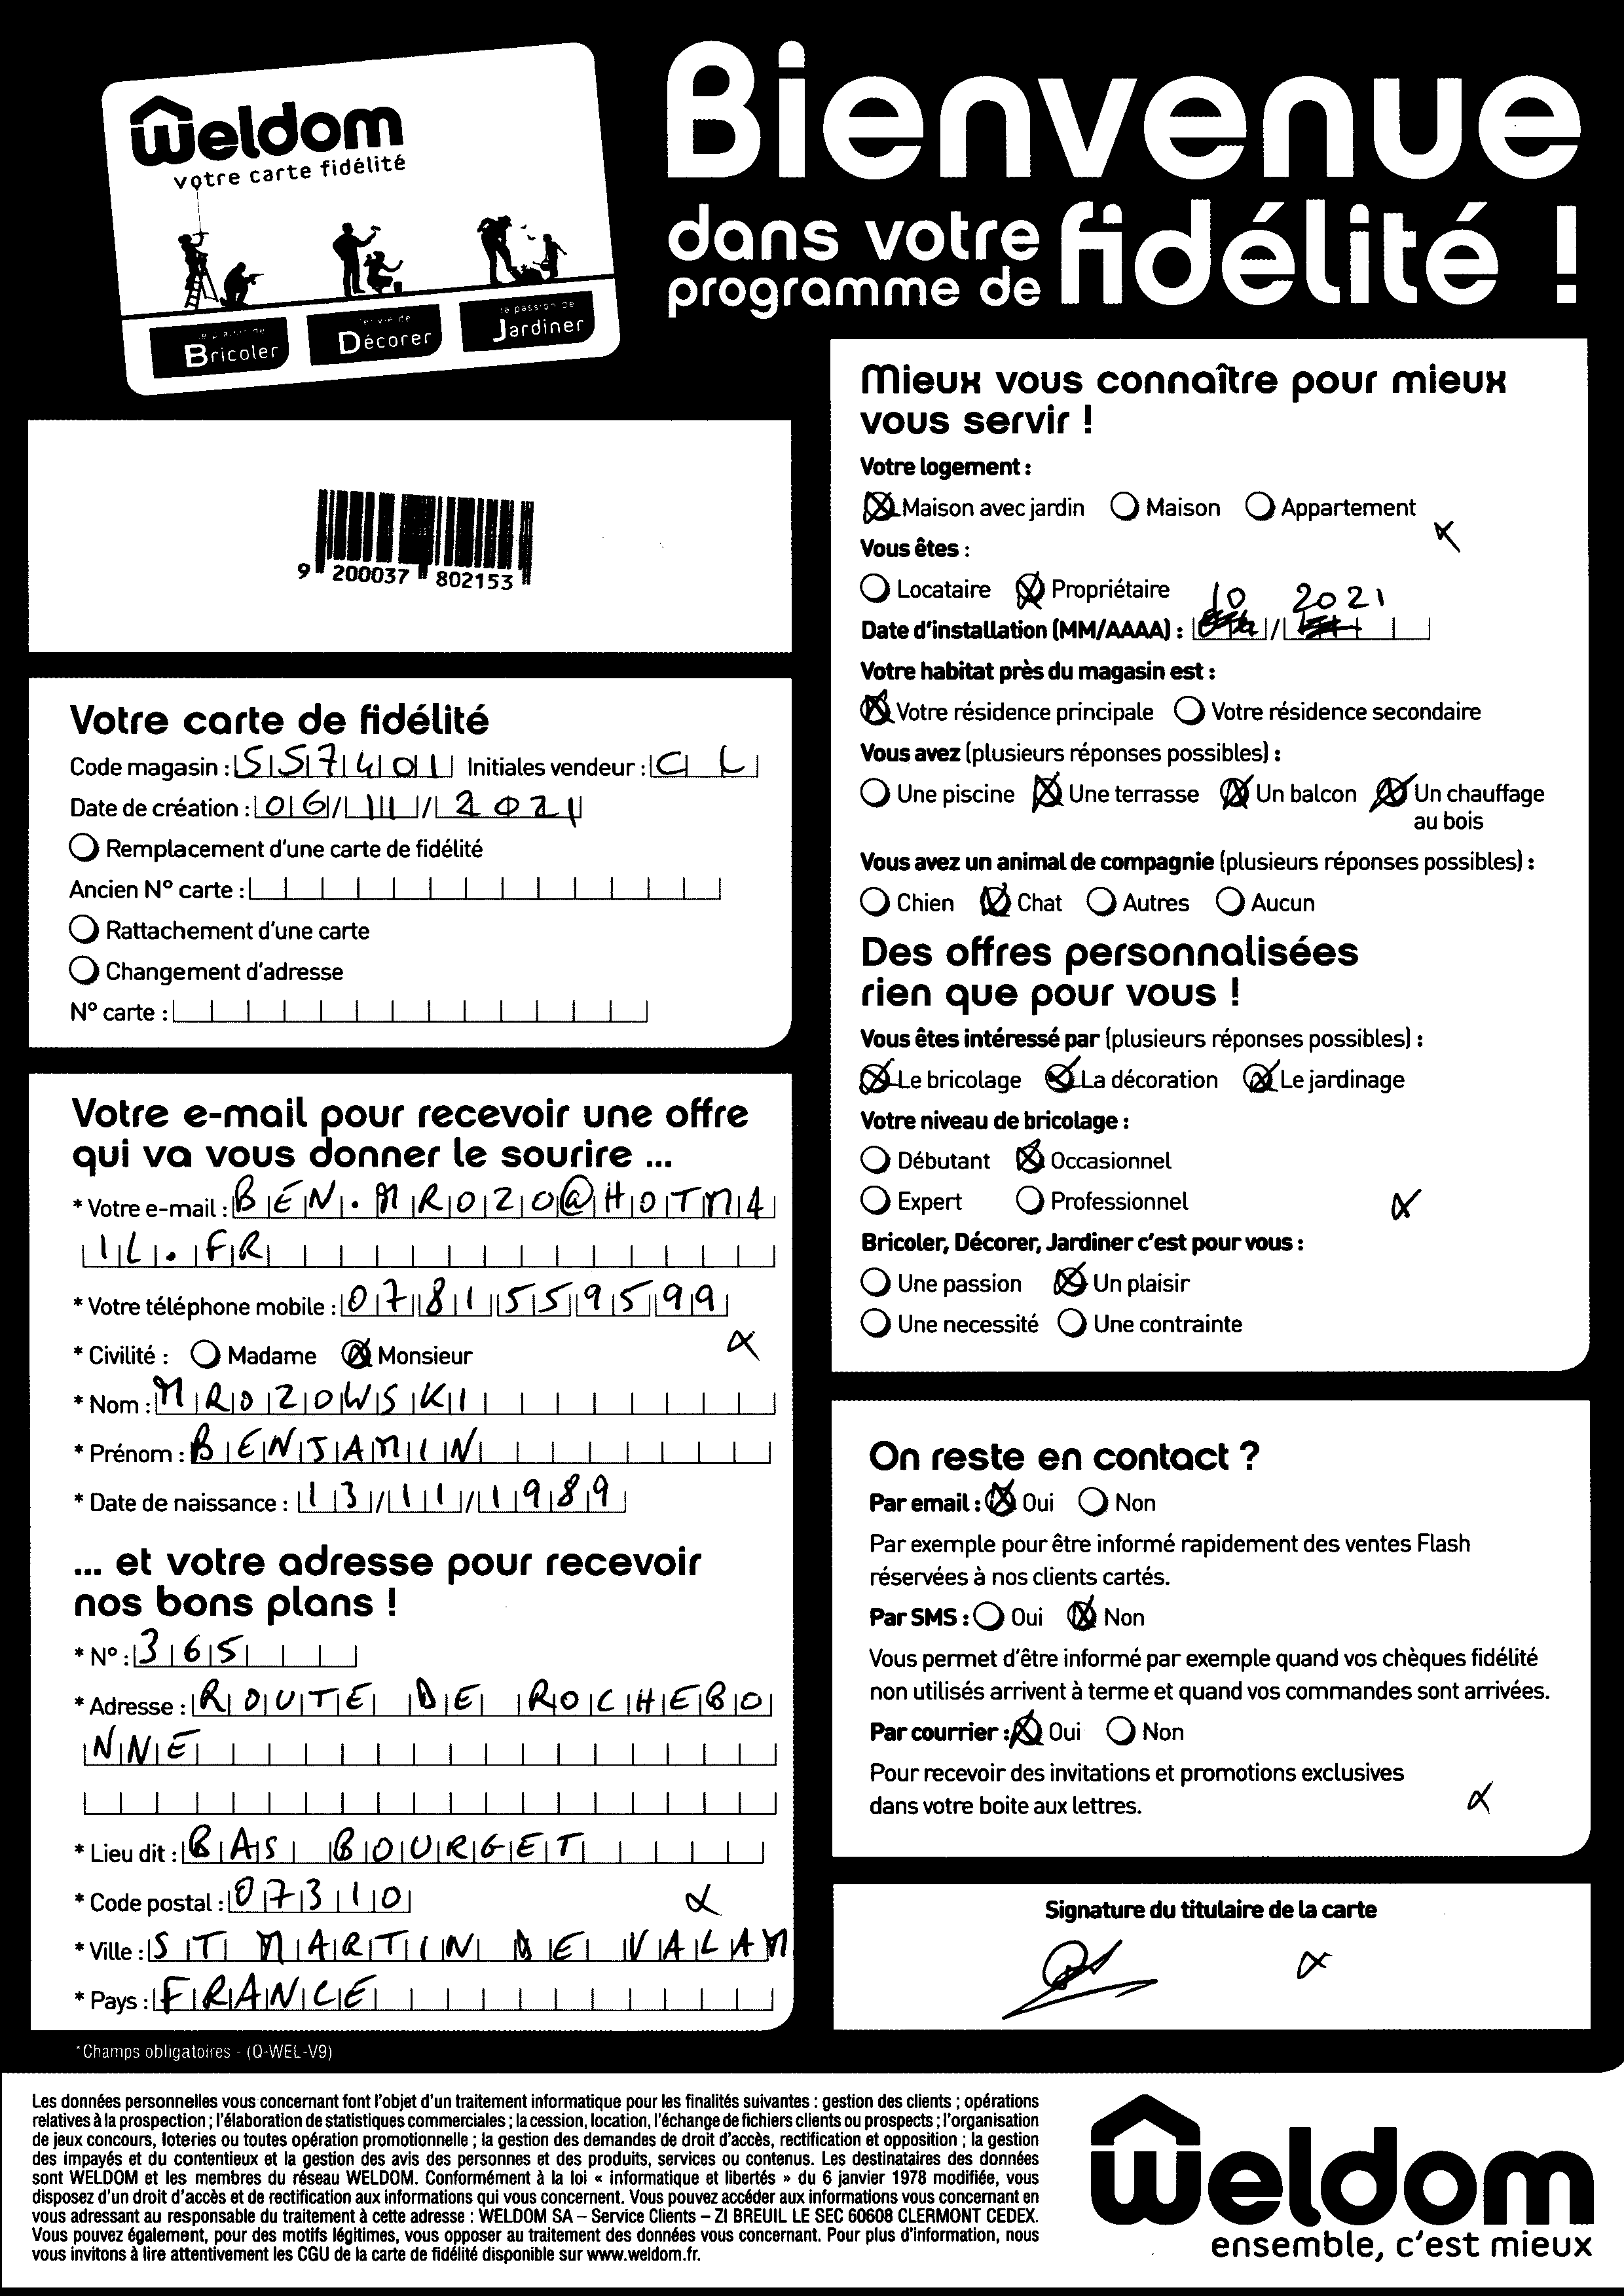 Weldom
votre carte fidélité
le plaisir de
Bricoler
l'envie de
Décorer
la passion de
Jardiner
Bienvenue
dans votre
programme de fidélité !
9 200037 802153
Votre carte de fidélité
Code magasin : SS7401 Initiales vendeur : CL
Date de création : 06/11/2021
Remplacement d'une carte de fidélité
Ancien N° carte :
Rattachement d'une carte
Changement d'adresse
N° carte :
Votre e-mail pour recevoir une offre
qui va vous donner le sourire ...
* Votre e-mail : BEN.MROZO@HOTMA
IL.FR
* Votre téléphone mobile : 0781559599
* Civilité : Madame Monsieur
* Nom : MROZOWSKI
* Prénom : BENJAMIN
* Date de naissance : 13/11/1989
... et votre adresse pour recevoir
nos bons plans !
* N° : 365
* Adresse : ROUTE DE ROCHEBO
NNE
* Lieu dit : BAS BOURGET
* Code postal : 07310
* Ville : ST MARTIN DE VALAM
* Pays : FRANCE
*Champs obligatoires - (Q-WEL-V9)
Mieux vous connaître pour mieux
vous servir !
Votre logement :
Maison avec jardin Maison Appartement
Vous êtes :
Locataire Propriétaire
Date d'installation (MM/AAAA) : 10 / 2021
Votre habitat près du magasin est :
Votre résidence principale Votre résidence secondaire
Vous avez (plusieurs réponses possibles) :
Une piscine Une terrasse Un balcon Un chauffage
au bois
Vous avez un animal de compagnie (plusieurs réponses possibles) :
Chien Chat Autres Aucun
Des offres personnalisées
rien que pour vous !
Vous êtes intéressé par (plusieurs réponses possibles) :
Le bricolage La décoration Le jardinage
Votre niveau de bricolage :
Débutant Occasionnel
Expert Professionnel
Bricoler, Décorer, Jardiner c'est pour vous :
Une passion Un plaisir
Une necessité Une contrainte
On reste en contact ?
Par email : Oui Non
Par exemple pour être informé rapidement des ventes Flash
réservées à nos clients cartés.
Par SMS : Oui Non
Vous permet d'être informé par exemple quand vos chèques fidélité
non utilisés arrivent à terme et quand vos commandes sont arrivées.
Par courrier : Oui Non
Pour recevoir des invitations et promotions exclusives
dans votre boite aux lettres.
Signature du titulaire de la carte
Les données personnelles vous concernant font l'objet d'un traitement informatique pour les finalités suivantes : gestion des clients ; opérations
relatives à la prospection ; l'élaboration de statistiques commerciales ; la cession, location, l'échange de fichiers clients ou prospects ; l'organisation
de jeux concours, loteries ou toutes opération promotionnelle ; la gestion des demandes de droit d'accès, rectification et opposition ; la gestion
des impayés et du contentieux et la gestion des avis des personnes et des produits, services ou contenus. Les destinataires des données
sont WELDOM et les membres du réseau WELDOM. Conformément à la loi « informatique et libertés » du 6 janvier 1978 modifiée, vous
disposez d'un droit d'accès et de rectification aux informations qui vous concernent. Vous pouvez accéder aux informations vous concernant en
vous adressant au responsable du traitement à cette adresse : WELDOM SA – Service Clients – ZI BREUIL LE SEC 60608 CLERMONT CEDEX.
Vous pouvez également, pour des motifs légitimes, vous opposer au traitement des données vous concernant. Pour plus d'information, nous
vous invitons à lire attentivement les CGU de la carte de fidélité disponible sur www.weldom.fr.
Weldom
ensemble, c'est mieux